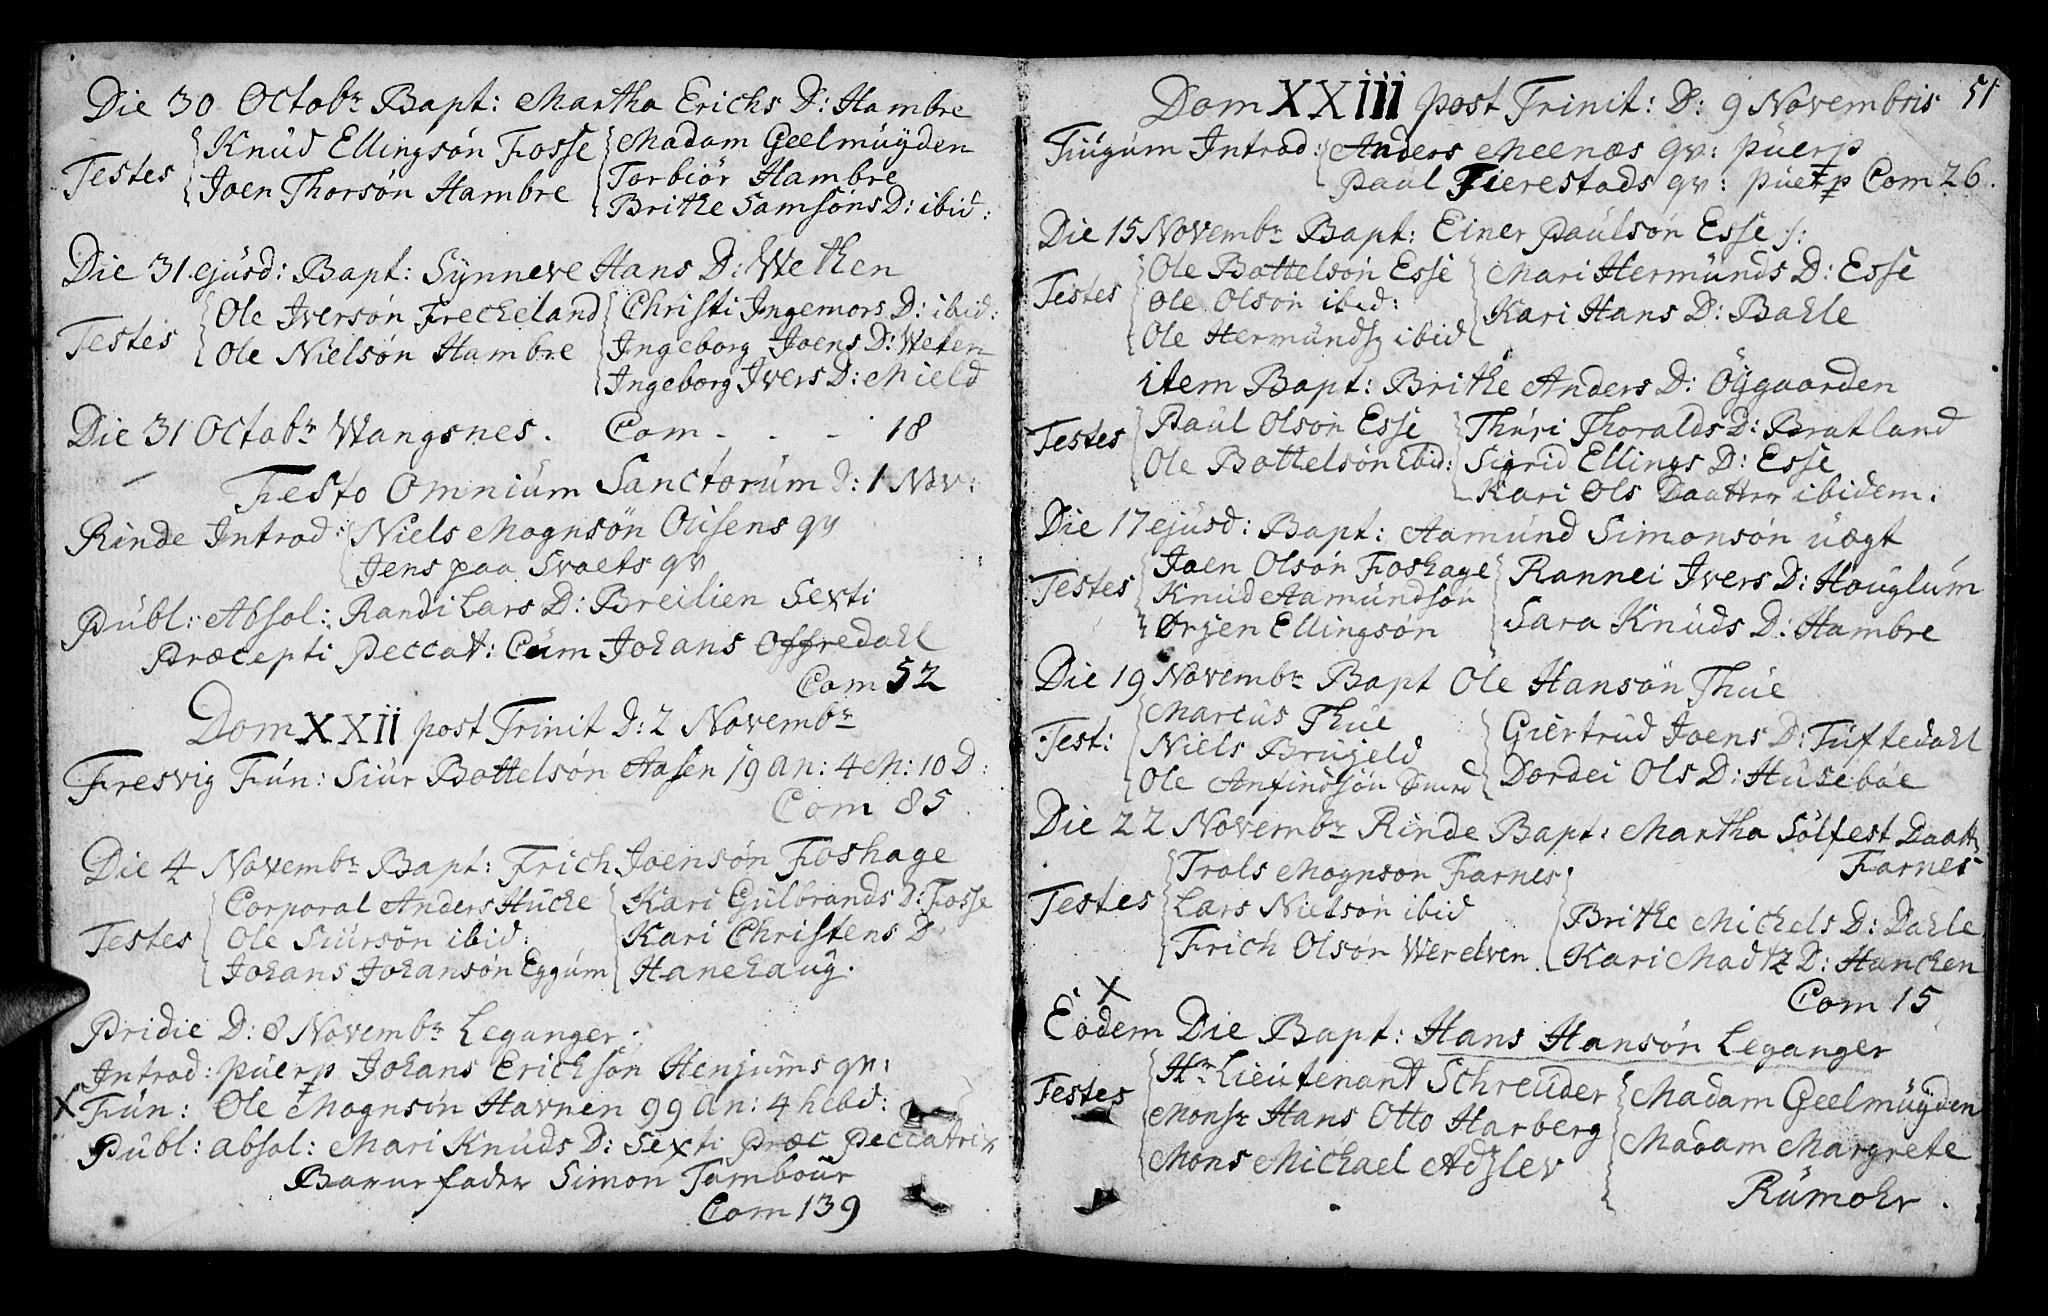 Die 30 Octobr Bapt: Martha Erichs D: Hambre
Testes
Knud Ellingsön Fosse
Joen Thorsön Hambre
Madam Geelmuyden
Torbiör Hambre
Brithe Samsöns D: ibid:
Die 31 ejusd: Bapt: Synneve Hans D: Wethen
Testes
Ole Iversön Frecheland
Ole Nielsön Hambre
Christi Ingemors D: ibid:
Ingeborg Joens D: Weten
Ingeborg Ivers D: Mield
Die 31 Octobr Wangsnes. Com - - - 18
Festo Omnium Sanctorum D: 1 Nov:
Rinde Introd: Niels Mognsön Olisens qv
Jens paa Svaets qv
Publ: Absol: Randi Lars D: Breilien Sexti
Præcepti Peccat: Cum Johans Offredahl
Com 52
Dom XXII post Trinit D: 2 Novembr
Fresvig Fun: Siur Bottelsön Aasen 19 an: 4 M: 10 D:
Com 85
Die 4 Novembr Bapt: Erich Joensön Foshage
Testes
Corporal Anders Hucke
Ole Siursön ibid:
Johans Johansön Eggum
Kari Gulbrands D: Fosse
Kari Christens D
Hanehaug.
Pridie D: 8 Novembr Leganger
Introd: puerp Johans Erichsön Henjums qv:
X Fun: Ole Mognsön Havnen 99 an: 4 hebd:
Publ: absol: Mari Knuds D: Sexti Præc Peccatrix
Barnefader Simon Tambour
Com 139
51
Dom XXIII post Trinit: D: 9 Novembris
Fugum Introd: Anders Meenæs qv: puerp
Paul Fierestads qv: puerp Com 26.
Die 15 Novembr Bapt: Einer Paulsön Esse
Testes
Ole Bottelsön Esse
Ole Olsön ibid:
Ole Hermundsz ibid
Mari Hermunds D: Esse
Kari Hans D: Bahle
item Bapt: Brithe Anders D: Öygaarden
Testes
Paul Olsön Esse
Ole Bottelsön ibid:
Thuri Thoralds D: Bratland
Sigrid Ellings D: Esse
Kari Ols Daatter ibidem.
Die 17 ejusd: Bapt: Aamund Simonsön uægt
Testes
Joen Olsön Foshage
Knud Aamundsön
Ørjen Ellingsön
Rannei Ivers D: Houglum
Sara Knuds D: Hambre
Die 19 Novembr Bapt Ole Hansön Thue
Test:
Marcus Thue
Niels Brujeld
Ole Anfindsön Smed
Giertrud Joens D: Tuftedahl
Dordei Ols D: Husebøe
Die 22 Novembr Rinde Bapt: Martha Sölfest Daatt
Farnes
Testes
Trols Mognsön Farnes
Lars Nielsön ibid
Erich Olsön Werelven
Brithe Michels D: Dahle
Kari Madtz D: Hanchen
Com 15
X
Eodem Die Bapt: Hans Hansön Leganger
Testes
Hr Lieutenant Schreuder
Monsr Hans Otto Harberg
Mons Michael Adzlev
Madam Geelmuyden
Madam Margrete
Rumohr.